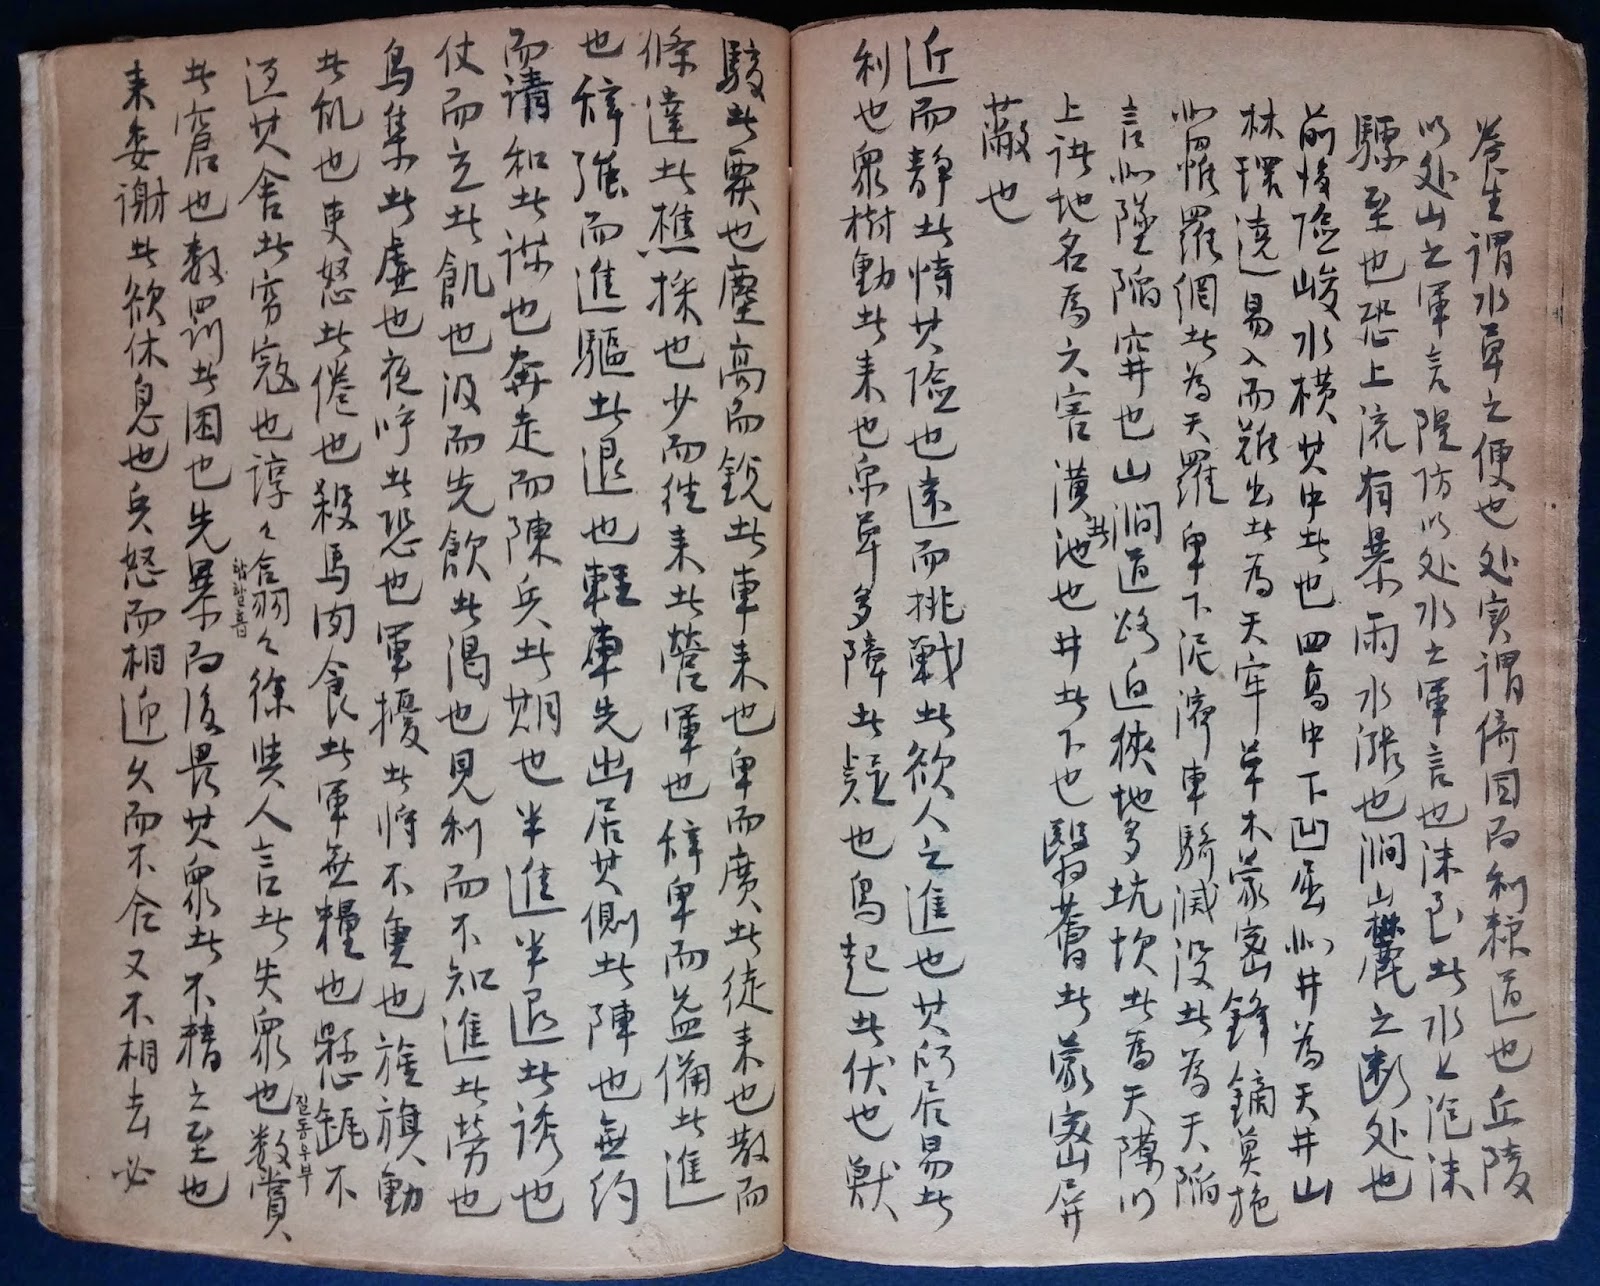 養生謂水草之便也处实謂倚固而利粮道也丘陵
以处山之軍言隄防以处水之軍言也沫至此水上泡沫
驟至也恐上流有暴雨水漲也澗山麓之断处也
前後險峻水橫其中此也四高中下凹屈此井為天井山
林環遶易入而難出此為天牢草木蒙密鋒鏑莫施
此罹羅網此為天羅卑下泥濘車騎減没此為天陷
言此墜陷穽也山澗道路迫狹地多坑坎此為天隙以
上诀地名為六害潢此池也井此下也翳薈此蒙密屏
蔽也
近而靜此恃其險也遠而挑戰此欲人之進也其所居易此
利也衆樹動此来也衆草多障此疑也鳥起此伏也獸
駭此覆也塵高而銳此車来也卑而廣此徒来也散而
條達此樵採也少而往来此營軍也辞卑而益備此進
也辞强而進驅此退也輕車先出居其側此陣也無約
而請和此谋也奔走而陳兵此期也半進半退此誘也
仗而立此飢也汲而先飲此渴也見利而不知進此勞也
鳥集此虛也夜呼此恐也軍擾此将不重也旌旗動
此乱也吏怒此倦也殺馬肉食此軍無糧也懸缻不
질동우부
返其舍此窮寇也諄々合羽々徐與人言此失衆也数賞
此窘也数罰此困也先暴而後畏其衆此不精之至也
来委謝此欲休息也兵怒而相迎久而不合又不相去必